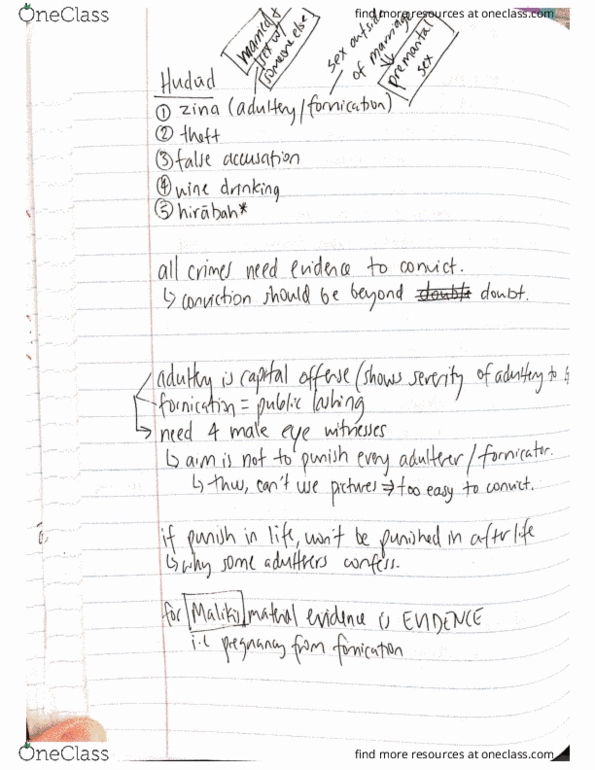 OneClass
find more resources at oneclass.com
married +
sex w/
someone else
sex outside
of marriage
premarital
sex
Hudūd
① zina (adultery/fornication)
② theft
③ false accusation
④ wine drinking
⑤ hirābah*
all crimes need evidence to convict.
↳ conviction should be beyond doubt.
adultery is capital offense (shows severity of adultery to
fornication = public lashing
→ need 4 male eye witnesses
↳ aim is not to punish every adulterer/fornicator.
↳ thus, can't use pictures ⇒ too easy to convict.
if punish in life, won't be punished in afterlife
↳ why some adulterers confess.
for Malikis, evidence is EVIDENCE
i.e pregnancy from fornication
OneClass
find more resources at oneclass.com